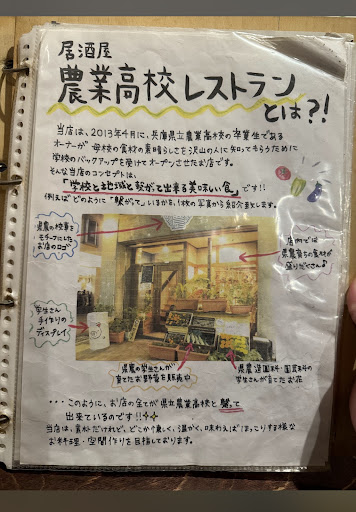 居酒屋
農業高校レストラン
とは?!
当店は、2013年4月に、兵庫県立農業高校の卒業生である
オーナーが 母校の食材の素晴らしさを沢山の人に知ってもらうために
学校のバックアップを受けてオープンさせたお店です。
そんな当店のコンセプトは、
「学校と地域と繋がる出来る美味しい食」です!!
例えばどのように"繋がって"いるか
県農の校章を
モチーフにした
お店のロゴ
店内では
県農育ちの食材が
盛りだくさん♪
学生さん
手作りの
ディスプレイ♪
県農の学生さんが
育てたお野菜も販売中
県農造園科・園芸科の
学生さんが育てたお花
・・・このように、お店の全てが県立農業高校と繋がって
出来ているのです!!
当店は、素朴だけれど、どこか優しく、温かく、味わえばほっこりする様な
お料理・空間作りを目指しております。